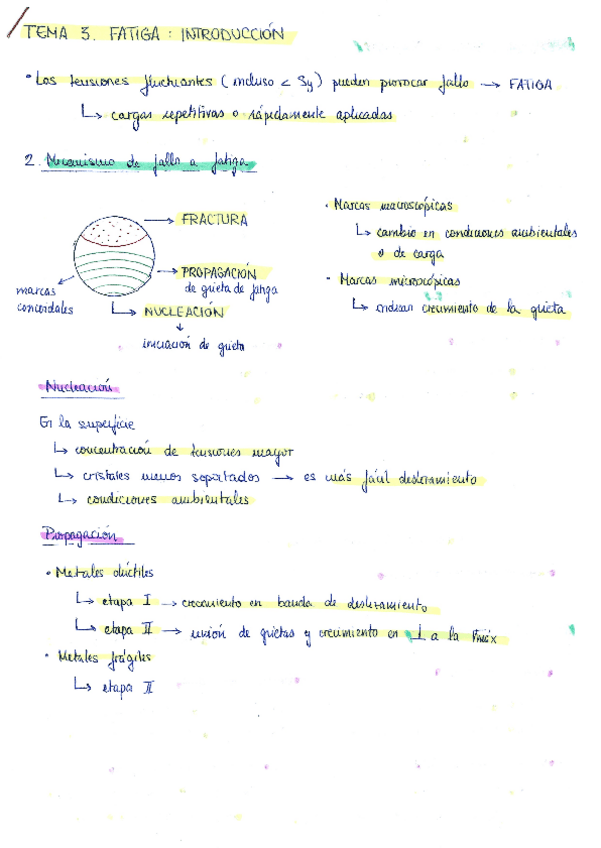 TEMA 3. FATIGA: INTRODUCCIÓN
• Las tensiones fluctuantes (incluso < Sy) pueden provocar fallo → FATIGA
↳ cargas repetitivas o rápidamente aplicadas
2. Mecanismo de fallo a fatiga
→ FRACTURA
→ PROPAGACIÓN
de grieta de fatiga
marcas
concoidales
↳ NUCLEACIÓN
↓
iniciación de grieta
• Marcas macroscópicas
↳ cambio en condiciones ambientales
o de carga
• Marcas microscópicas
↳ indican crecimiento de la grieta
Nucleación
En la superficie
↳ concentración de tensiones mayor
↳ cristales menos soportados → es más fácil deslizamiento
↳ condiciones ambientales
Propagación
• Metales dúctiles
↳ etapa I → crecimiento en banda de deslizamiento
↳ etapa II → unión de grietas y crecimiento en ⊥ a la
• Metales frágiles
↳ etapa II